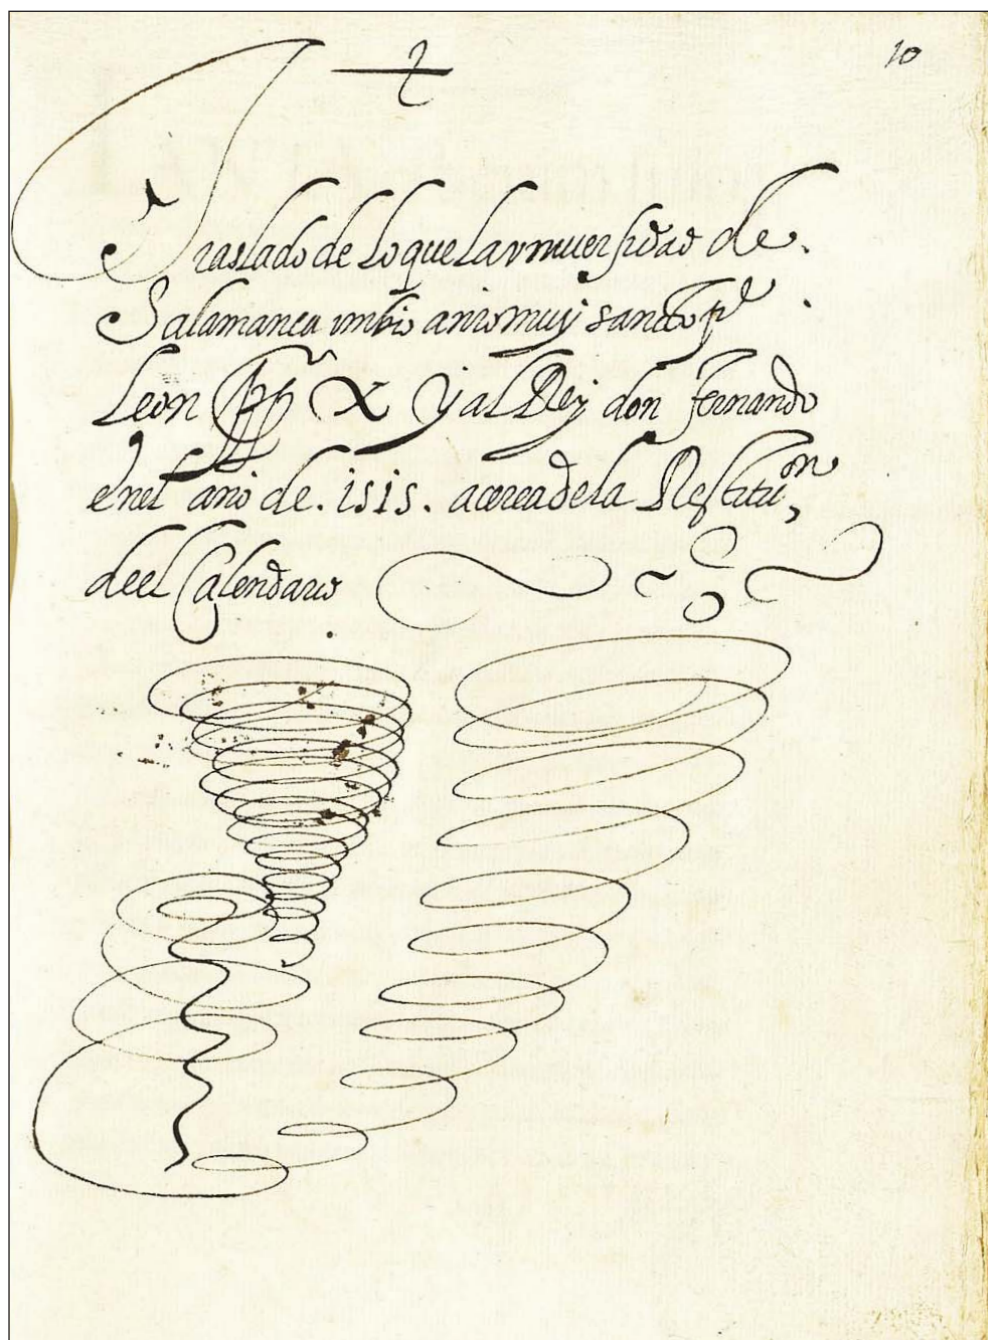 10
Traslado de lo que la vniuersidad de.
Salamanca imbio a nro muy sancto pe
Leon pp X y al Rey don fernando
en el año de .1515. acerca de la Restituon
de el Calendario